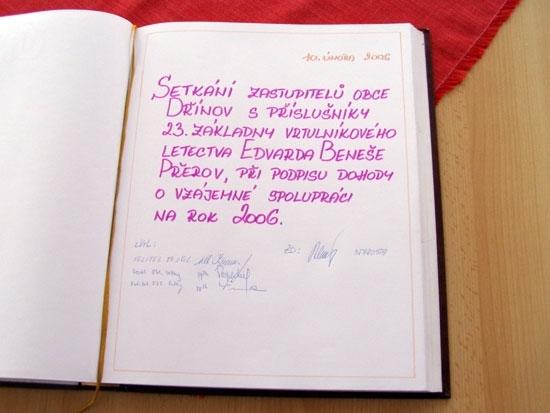 10. ÚNORA 2006
SETKÁNÍ ZASTUPITELŮ OBCE
DŘÍNOV S PŘÍSLUŠNÍKY
23. ZÁKLADNY VRTULNÍKOVÉHO
LETECTVA EDVARDA BENEŠE
PŘEROV, PŘI PODPISU DOHODY
O VZÁJEMNÉ SPOLUPRÁCI
NA ROK 2006.
ZD: